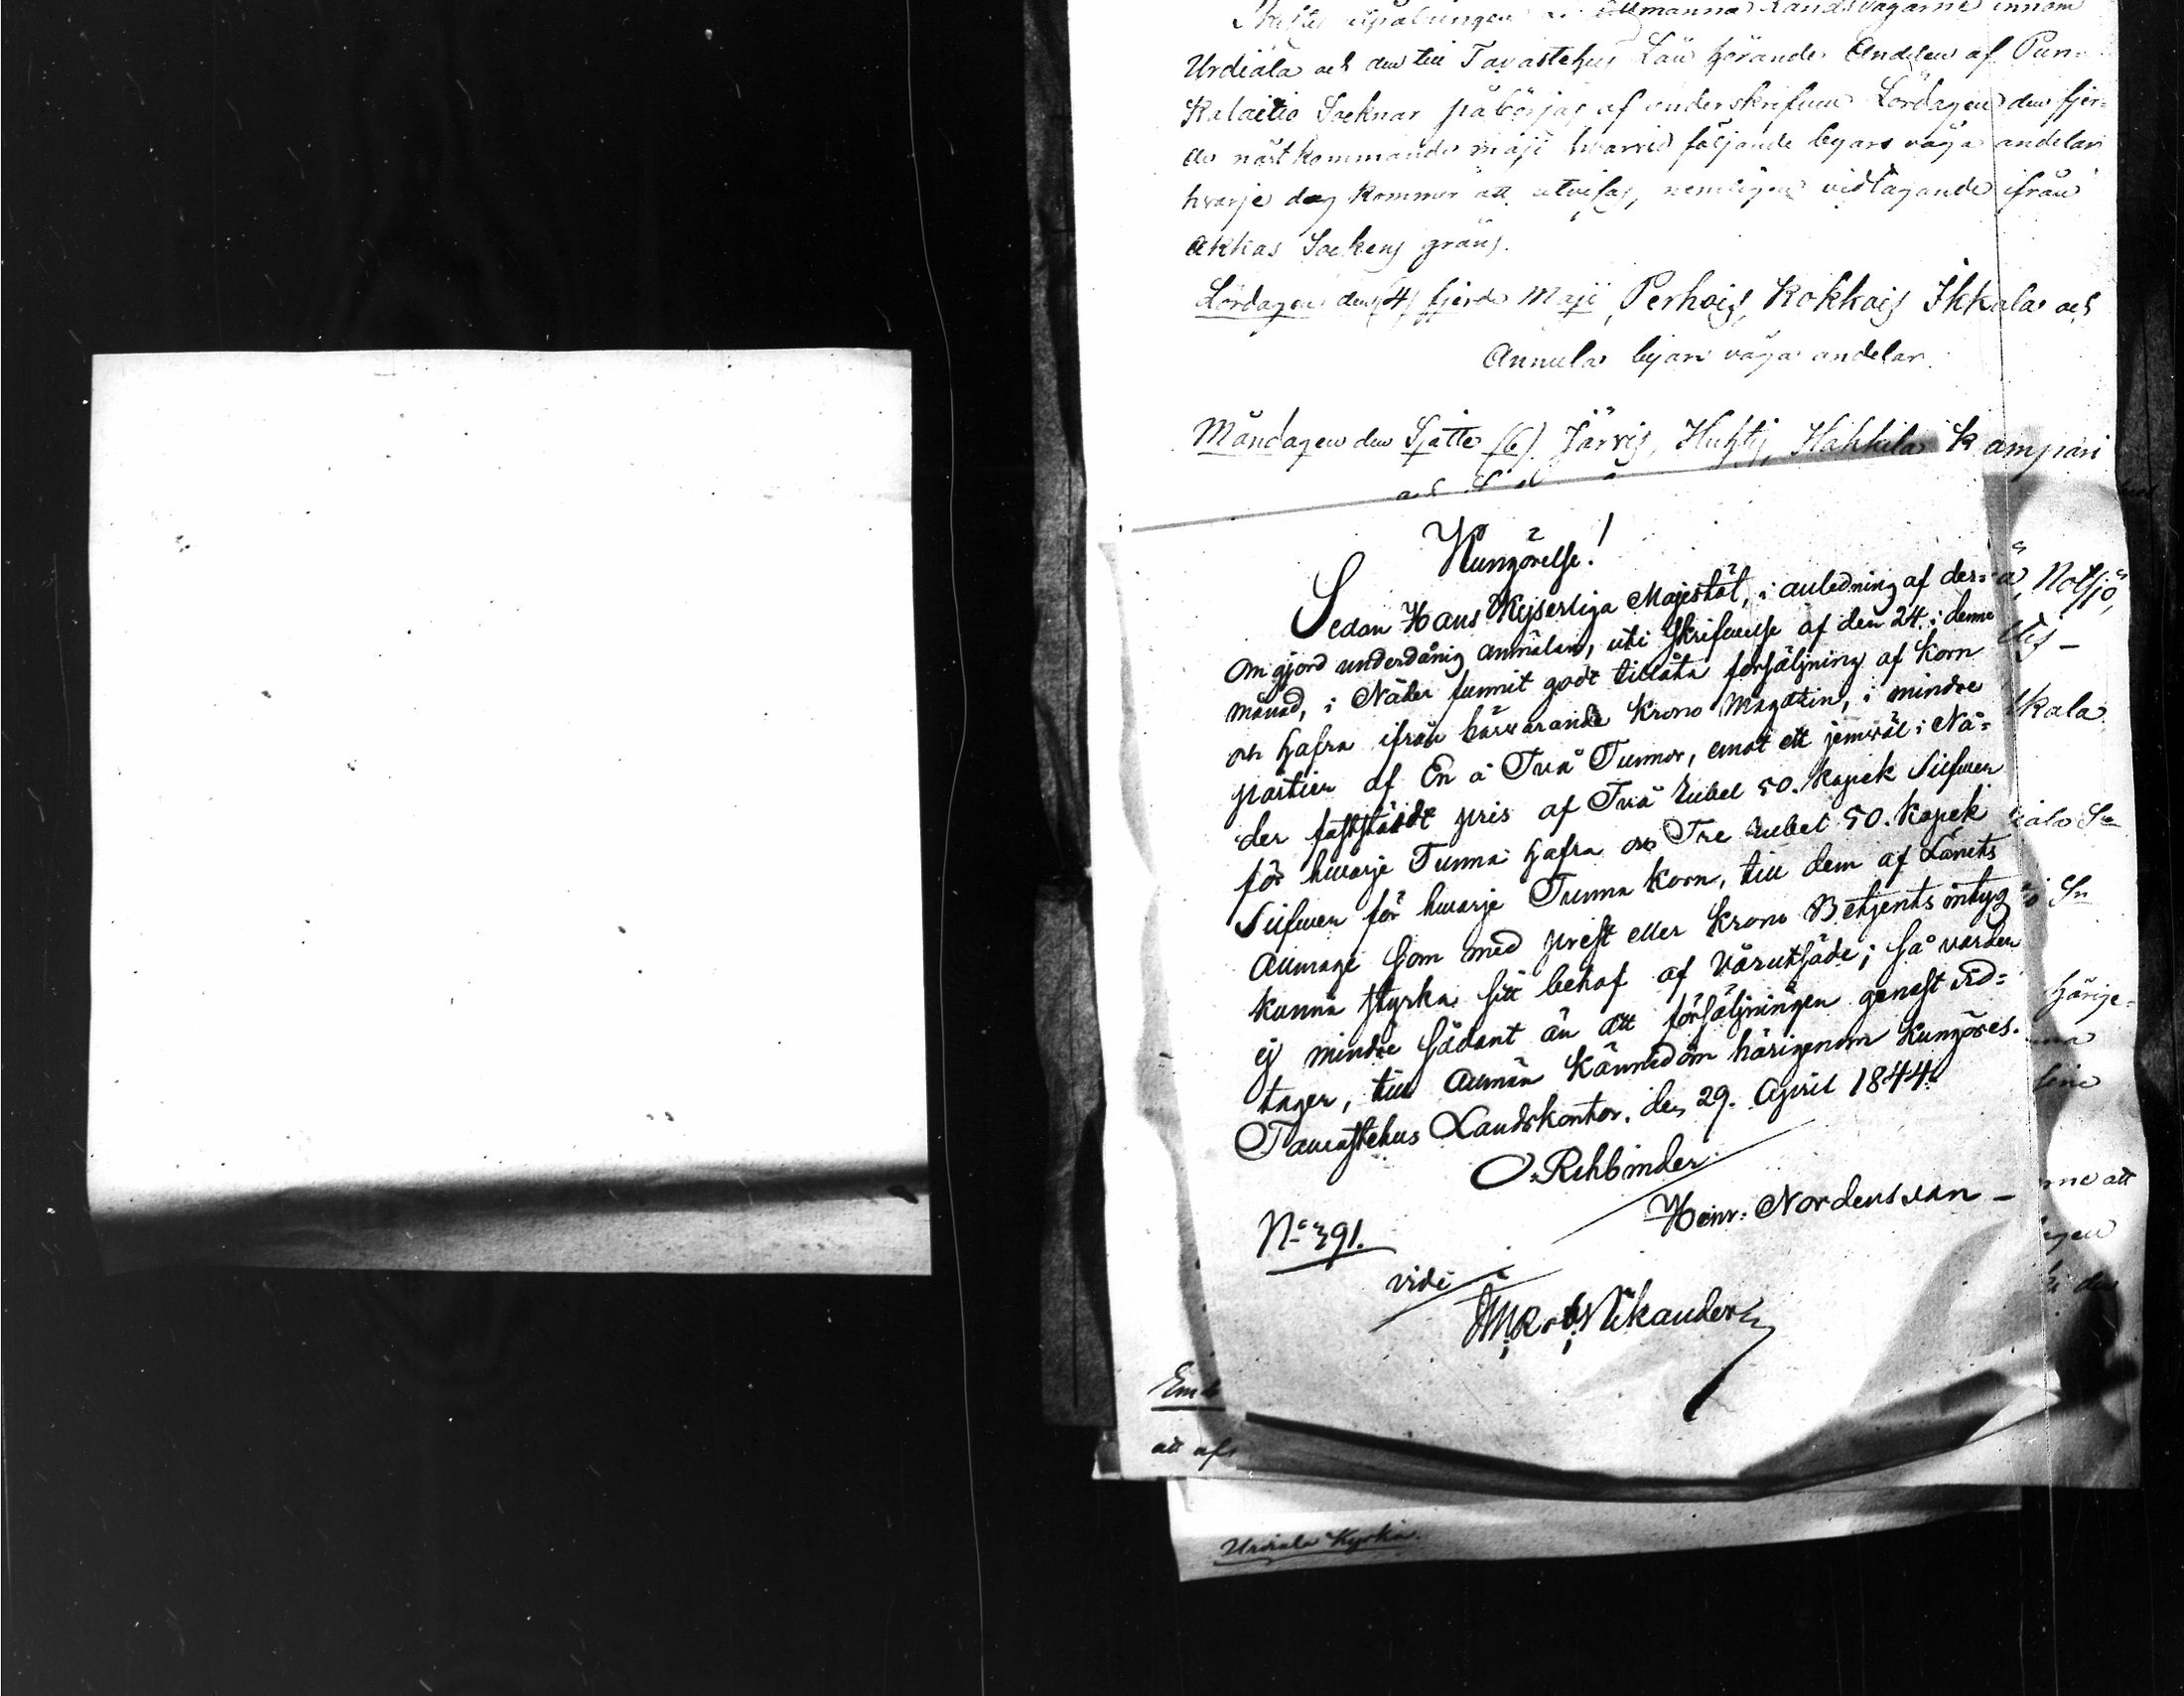 Allmanna Landsvägarne innom
Urdiala och den till Tavastehus Län hörande Andelen af Pun=
kalaitio Socknar påbörjas af underskrifven Lördagen den fjer=
de nästkommande maji hvarvid följande byars väga andelar
hvarje dag kommer att utvisas, nemligen vidtagande ifrån
Akkas Sockens gräns.
Lördagen den (4) fjerde Maji, Perhois, Kokkois Ikkala och
Annula byars väga andelar.
Måndagen den Sjätte (6) Järvis, Huhtis, Hakkila Kampari
Kungörelse!
Sedan Hans Kejserliga Majestät, i anledning af der=
om gjord underdånig anmälan, uti skrifwelse af den 24. i denne
månad, i Nåder funnit godt tillåta försäljning af Korn
och hafra ifrån härwarande Krono Magazin, i mindre
partier af En à Två Tunnor, emot ett jemwäl i Nå=
der faststäldt pris af Två Rubel 50. Kopek Silfwer
för hwarje Tunna hafra och Tre Rubel 50. Kopek
Silfwer för hwarje Tunna Korn, till dem af Länets
Allmoge som med prest eller Krono Betjents intyg
kunna styrka sitt behof af Vårutsäde; så varder
ej mindre sådant än att försäljningen genast vid=
tager, till Allmän kännedom härigenom kungöres.
Tawastehus Landskontor, den 29. April 1844.
O. Rehbinder
Heinr: Nordensvan
No 391.
vidi
Nikander
ä, Notsjö,
kala
iala Sn
Sn
härige=
me att
Emd
att af
Urdiala Kyrka.